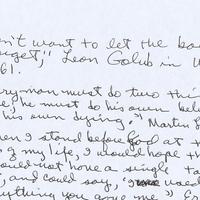 n't want to let the ba
rget," Leon Golub in
61.
ery man must do two thi
e, he must do his own beli
his own dying." Martin L
hen I stand before God at t
of my life, I would hope th
ould not have a single ta
, and could say, "I used
ything you gave me." Er